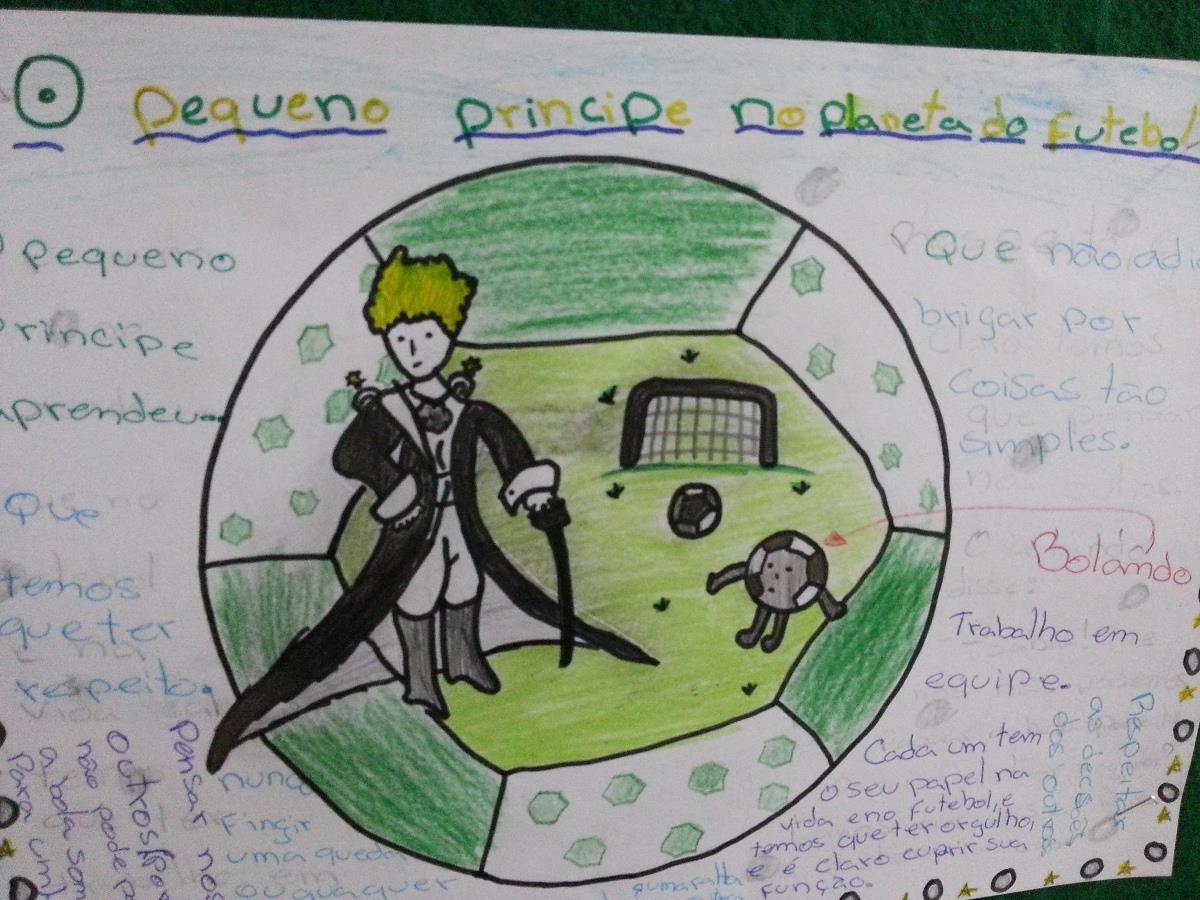 O Pequeno príncipe no planeta do futebol
O pequeno
príncipe
aprendeu...
Que
temos
que ter
respeito.
Pensar nos
outros (por
não pode p
a bola som
Para um
nunca
Fingir
uma queda
ou quaquer
Que não adi
brigar por
coisas tão
simples.
Bolando
Trabalho em
equipe.
Cada um tem
o seu papel na
vida e no futebol, e
temos que ter orgulho,
e é claro cuprir sua
função.
Respeitar
as decisões
dos outros